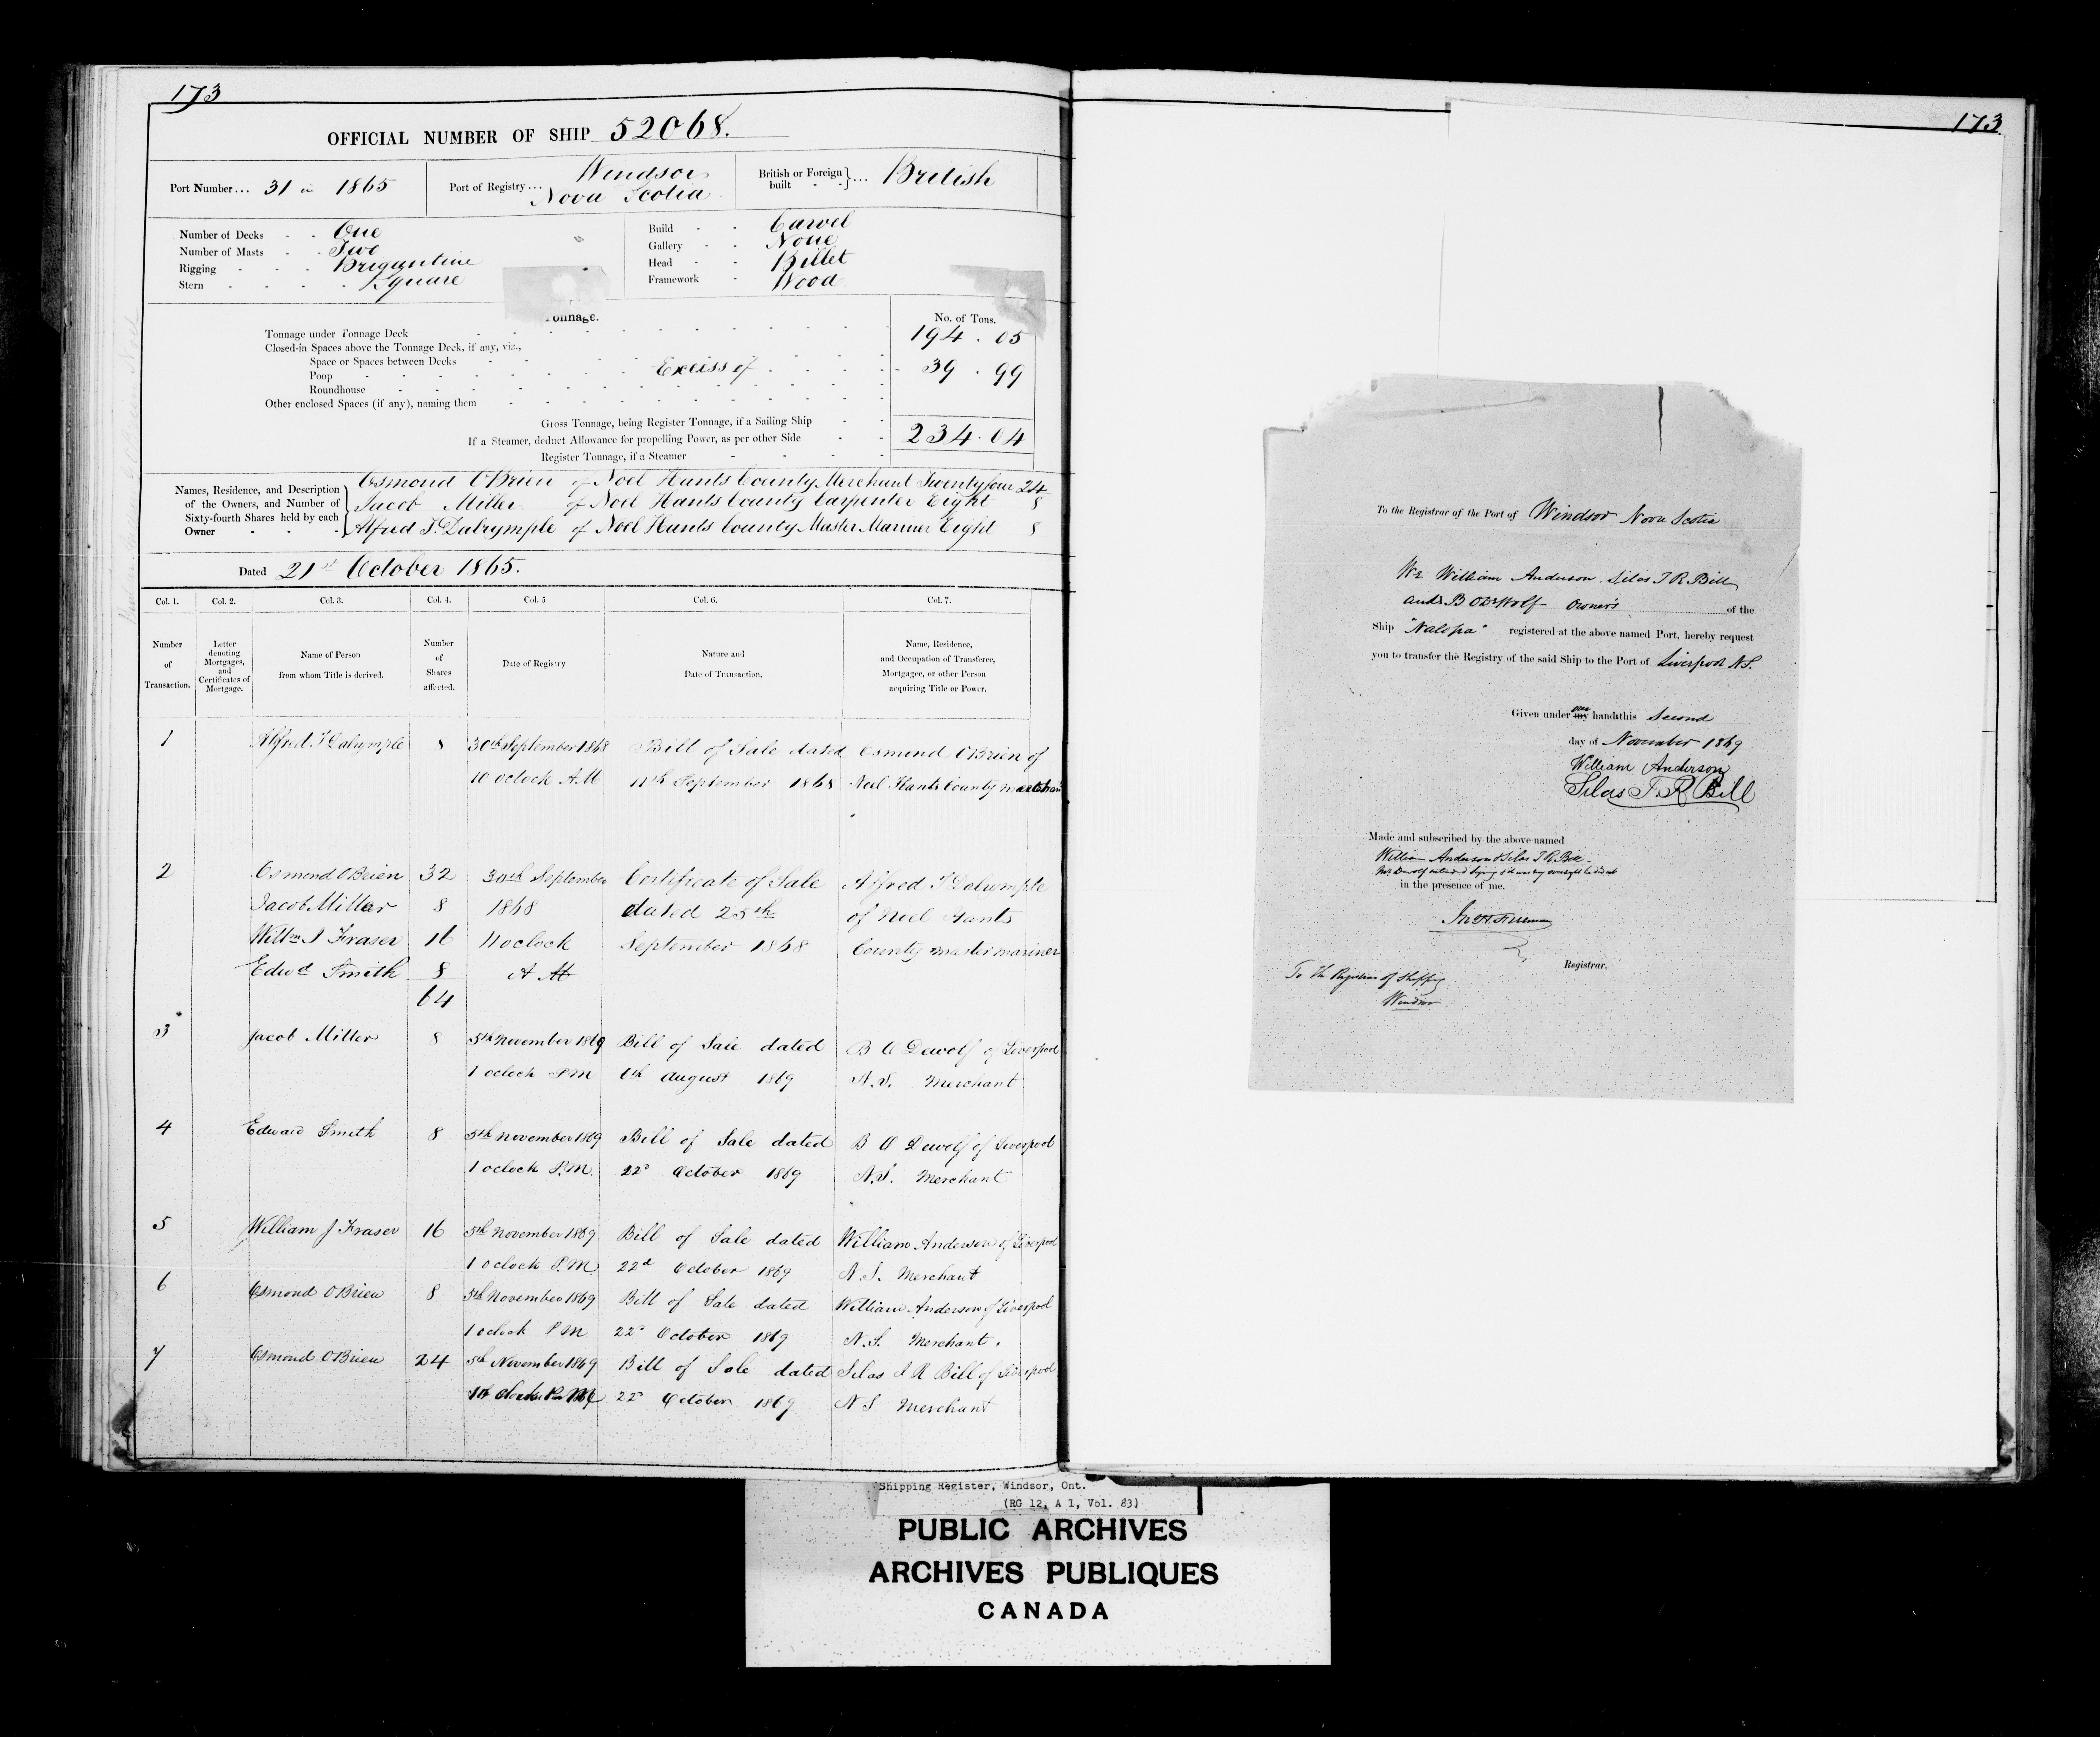 173
OFFICIAL NUMBER OF SHIP 52068.
Port Number... 31 in 1865
Port of Registry... Windsor Nova Scotia
British or Foreign built } ... British
Number of Decks - - One
Number of Masts - - Two
Rigging - - - Brigantine
Stern - - - - Square
Build - - Carvel
Gallery - - None
Head - - Billet
Framework - Wood
Tonnage.
No. of Tons.
Tonnage under Tonnage Deck 194 . 05
Closed-in Spaces above the Tonnage Deck, if any, viz.,
Space or Spaces between Decks
Poop Excess of 39 . 99
Roundhouse
Other enclosed Spaces (if any), naming them
Gross Tonnage, being Register Tonnage, if a Sailing Ship 234 . 04
If a Steamer, deduct Allowance for propelling Power, as per other Side
Register Tonnage, if a Steamer
Names, Residence, and Description of the Owners, and Number of Sixty-fourth Shares held by each Owner
Osmond OBrien of Noel Hants County Merchant Twentyfour 24
Jacob Miller of Noel Hants County Carpenter Eight 8
Alfred T. Dalrymple of Noel Hants County Master Mariner Eight 8
Dated 21st October 1865.
Col. 1. Col. 2. Col. 3. Col. 4. Col. 5 Col. 6. Col. 7.
Number of Transaction.
Letter denoting Mortgages, and Certificates of Mortgage.
Name of Person from whom Title is derived.
Number of Shares affected.
Date of Registry
Nature and Date of Transaction.
Name, Residence, and Occupation of Transferee, Mortgagee, or other Person acquiring Title or Power.
1 Alfred T Dalrymple 8 30th September 1868 Bill of Sale dated Osmond OBrien of
10 oclock A.M 11th September 1868 Noel Hants County merchant
2 Osmond OBrien 32 30th September Certificate of Sale Alfred T Dalrymple
Jacob Miller 8 1868 dated 25th of Noel Hants
Willm J Fraser 16 11 oclock September 1868 County master mariner
Edwd Smith 8 A M
64
3 Jacob Miller 8 5th November 1869 Bill of Sale dated B O Dewolf of Liverpool
1 oclock P.M 6th August 1869 N.S. Merchant
4 Edward Smith 8 5th November 1869 Bill of Sale dated B O Dewolf of Liverpool
1 oclock P.M. 22d October 1869 N.S. Merchant
5 William J Fraser 16 5th November 1869 Bill of Sale dated William Anderson of Liverpool
1 oclock P.M. 22d October 1869 N.S. Merchant
6 Osmond OBrien 8 5th November 1869 Bill of Sale dated William Anderson of Liverpool
1 oclock P M 22d October 1869 N.S. Merchant.
7 Osmond OBrien 24 5th November 1869 Bill of Sale dated Silas T R Bill of Liverpool
22d October 1869 N S Merchant
173
To the Registrar of the Port of Windsor Nova Scotia
We William Anderson. Silas T R Bill
and B O DeWolf Owners of the
Ship "Nalopa" registered at the above named Port, hereby request
you to transfer the Registry of the said Ship to the Port of Liverpool N.S.
Given under my our hands this Second
day of November 1869
William Anderson
Silas T. R Bill
Made and subscribed by the above named
William Anderson & Silas T. R. Bill
in the presence of me.
Registrar.
To the Registrar of Shipping
Windsor
Shipping Register, Windsor, Ont.
(RG 12, A 1, Vol. 83)
PUBLIC ARCHIVES
ARCHIVES PUBLIQUES
CANADA